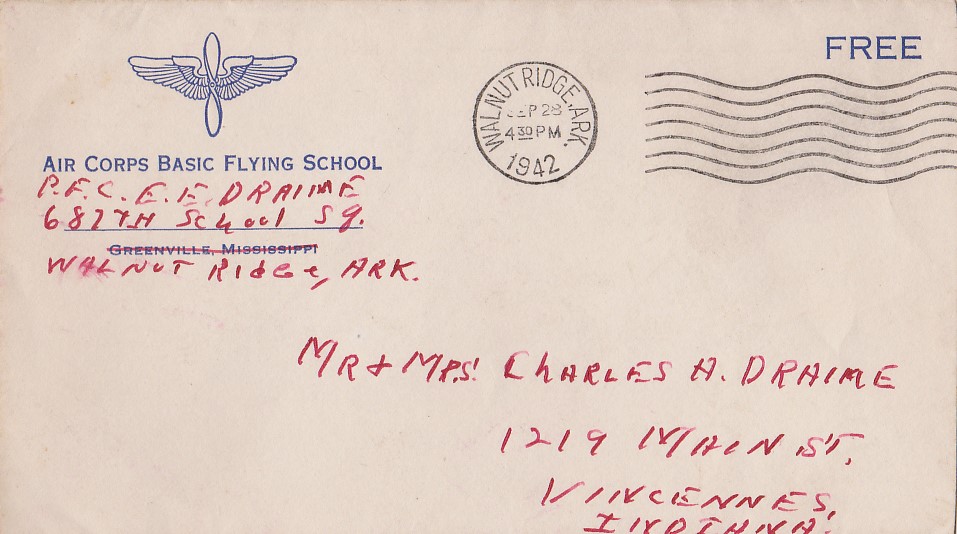 FREE
AIR CORPS BASIC FLYING SCHOOL
P.F.C. E. E. DRAIME
687TH School Sq.
GREENVILLE, MISSISSIPPI
WALNUT RIdGe, ARK.
WALNUT RIDGE, ARK.
SEP 28
4 30 PM
1942
MR & MRS. CHARLES A. DRAIME
1219 MAIN ST.
VINCENNES,
INDIANA.